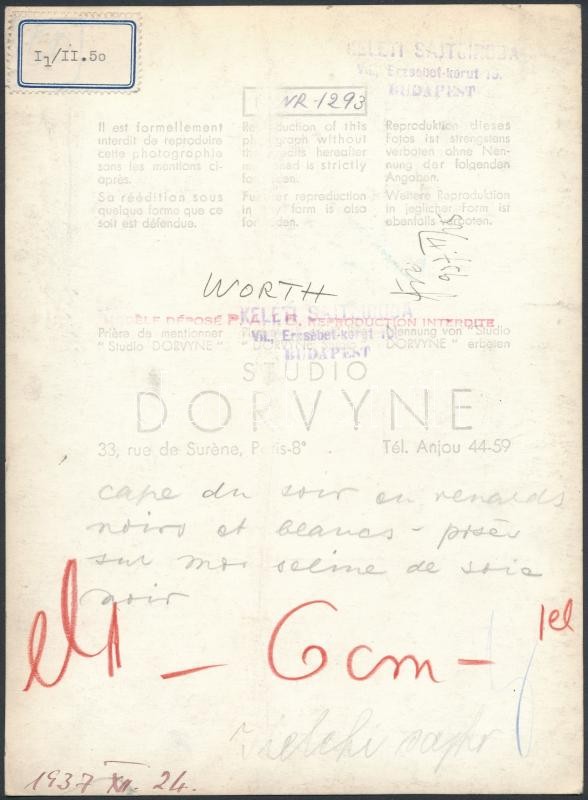 I1/II.50
KELETI SAJTÓIRODA
VII., Erzsébet-körut 15.
BUDAPEST
NR. 1293
Il est formellement
interdit de reproduire
cette photographie
sans les mentions ci-
après.
Sa réédition sous
quelque forme que ce
soit est défendue.
Reproduction of this
photograph without
the credits hereafter
is strictly
Further reproduction
in any form is also
Reproduktion dieses
Fotos ist strengstens
verboten ohne Nen-
nung der folgenden
Angaben.
Weitere Reproduktion
in jeglicher Form ist
ebenfalls verboten.
WORTH
MODÈLE DÉPOSÉ P.A.I.S. REPRODUCTION INTERDITE
KELETI SAJTÓIRODA
VII., Erzsébet-körut 15.
BUDAPEST
Prière de mentionner
"Studio DORVYNE"
" DORVYNE
Nennung von "Studio
DORVYNE" erbeten
STUDIO
DORVYNE
33, rue de Surène, Paris-8e Tél. Anjou 44-59
cape du soir en renards
noirs et blancs - posée
sur
de soie
noir
- 6cm -
1937 XII. 24.